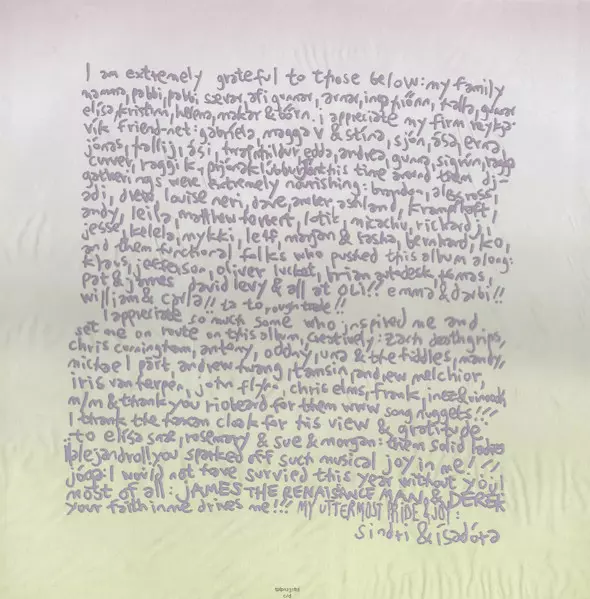 I am extremely grateful to those below: my family
mamma, pabbi, pabbi, sævar, afi gunnar, arnar, inga hrönn, halla, gunnar
elísa, kristinn, helena, makar & börn. i appreciate my firm reykja-
vík friend-net: gabríela, magga v & stína, sjón, ása, erna,
jónas, hallij, ási, þrainn, hildur, edda, andrea, guna, sigrún, ragga
curver, raggi k, prjónaklúbburinn this time around them dj-
gatherings were extremely nourishing: brandon, alex ross,
adj, drew louise neri, dave, amber ashland, krampfhaft,
andy, leila, matthew herbert, lotic, mikachu, richard j,
jesse, kelela, mykki, leif, marjan & sasha, bernhard, ko,
and them functional folks who pushed this album along:
klaus, jefferson, oliver lucket, brian autodesk, tomas,
pat & james david levy & all at OLI!! emma & darbi!!
william & carla!! ta to rough trade!!
I appreciate so much some who inspired me and
set me on route on this album, creatively: zach deathgrips,
chris cunningham, antony, oddny, una & the fiddles, mandy,
michael part, andrew huang, tamsin, andrew melchior,
iris van herpen, john flynn, chris elms, frank, inez & vinoodh
m/m & thank you riobeard for them www song nuggets!!!
I thank the haxan cloak for his view & gratitude
to elísa snæ, rosemary & sue & morgan: them solid ladies
alejandro!! you sparked off such musical joy in me!!
jóga: I would not have survied this year without you!
most of all: JAMES THE RENAISANCE MAN & DEREK
your faith in me drives me!!! MY UTTERMOST PRIDE & JOY:
sindri & ísadóra